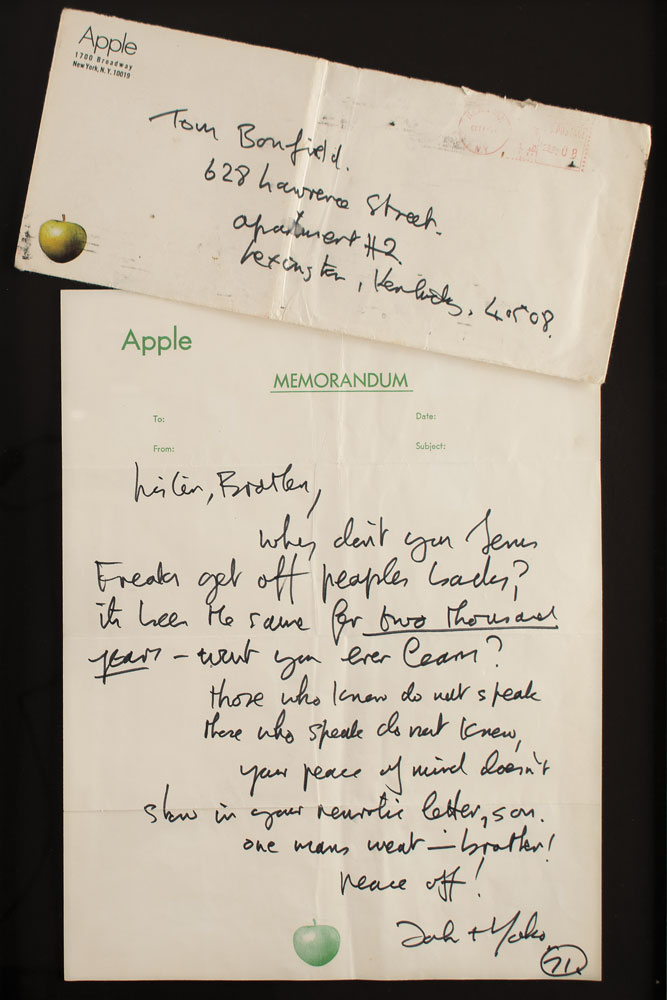 Apple
1700 Broadway
New York, N.Y. 10019
Tom Bonfield.
628 Lawrence Street.
apartment #2.
Lexington, Kentucky. 40508.
Apple
MEMORANDUM
To:
Date:
From:
Subject:
Listen, Brother,
why don't you Jesus
Freaks get off peoples backs?
its been the same for two thousand
years – wont you ever learn?
those who know do not speak
those who speak do not know,
your peace of mind doesn't
show in your neurotic letter, son.
one mans meat – brother!
peace off!
John + Yoko
71